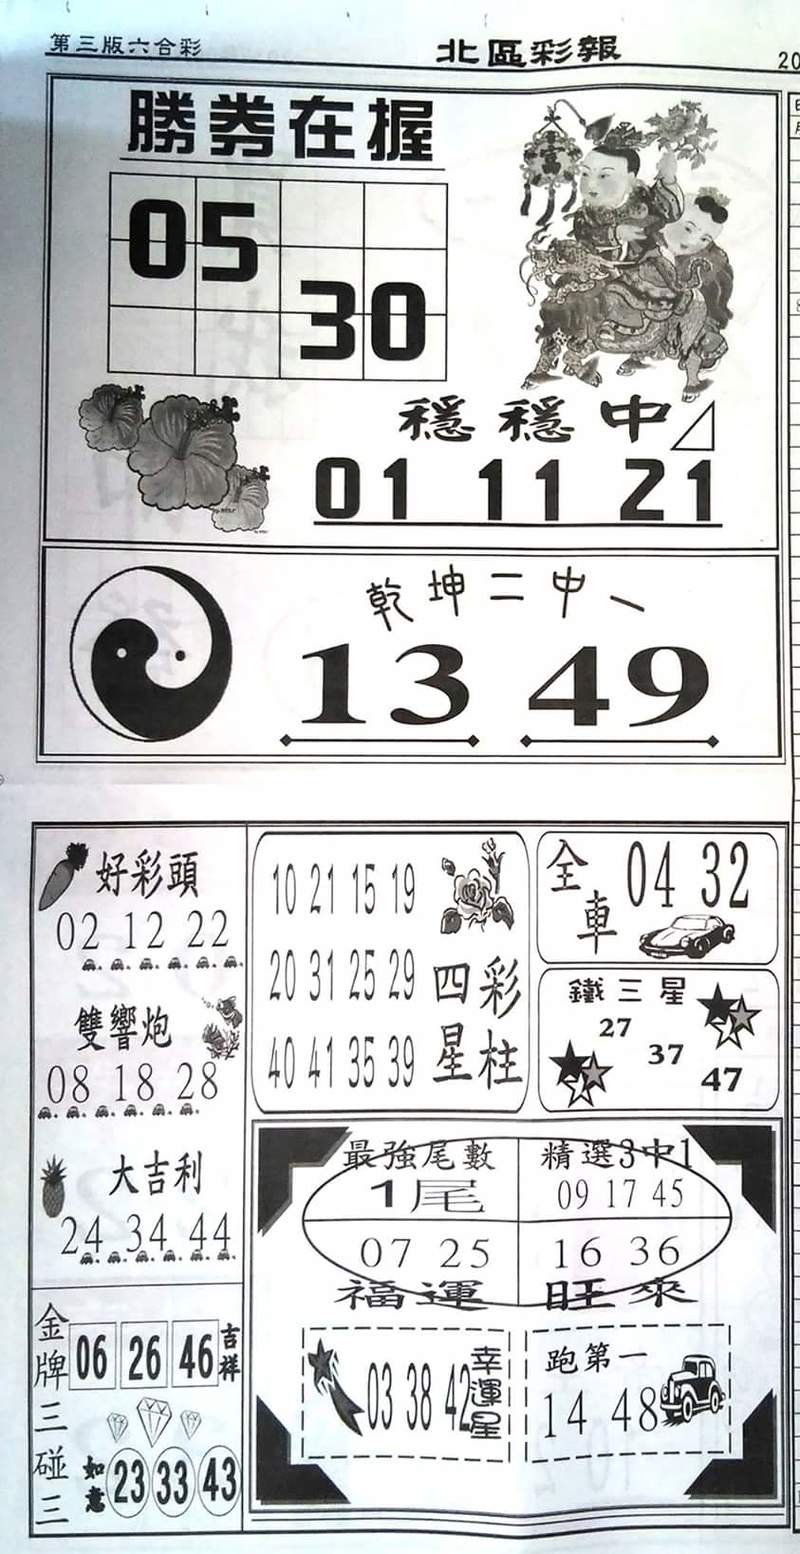 第三版六合彩 北區彩報 20
勝券在握
05
30
穩穩中
01 11 21
乾坤二中一
13 49
好彩頭
02 12 22
雙響炮
08 18 28
大吉利
24 34 44
金牌三碰三
06 26 46 吉祥
如意 23 33 43
10 21 15 19
20 31 25 29
40 41 35 39
四星彩柱
全車 04 32
鐵三星
27
37
47
最強尾數 精選3中1
1尾 09 17 45
07 25 16 36
福運 旺來
03 38 42 幸運星
跑第一
14 48